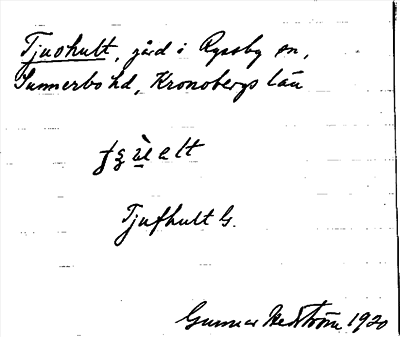 Tjuohult, gård i Ryssby sn,
Sunnerbo hd, Kronobergs län
Tjufhult G.
Gunnar Hedström 1920